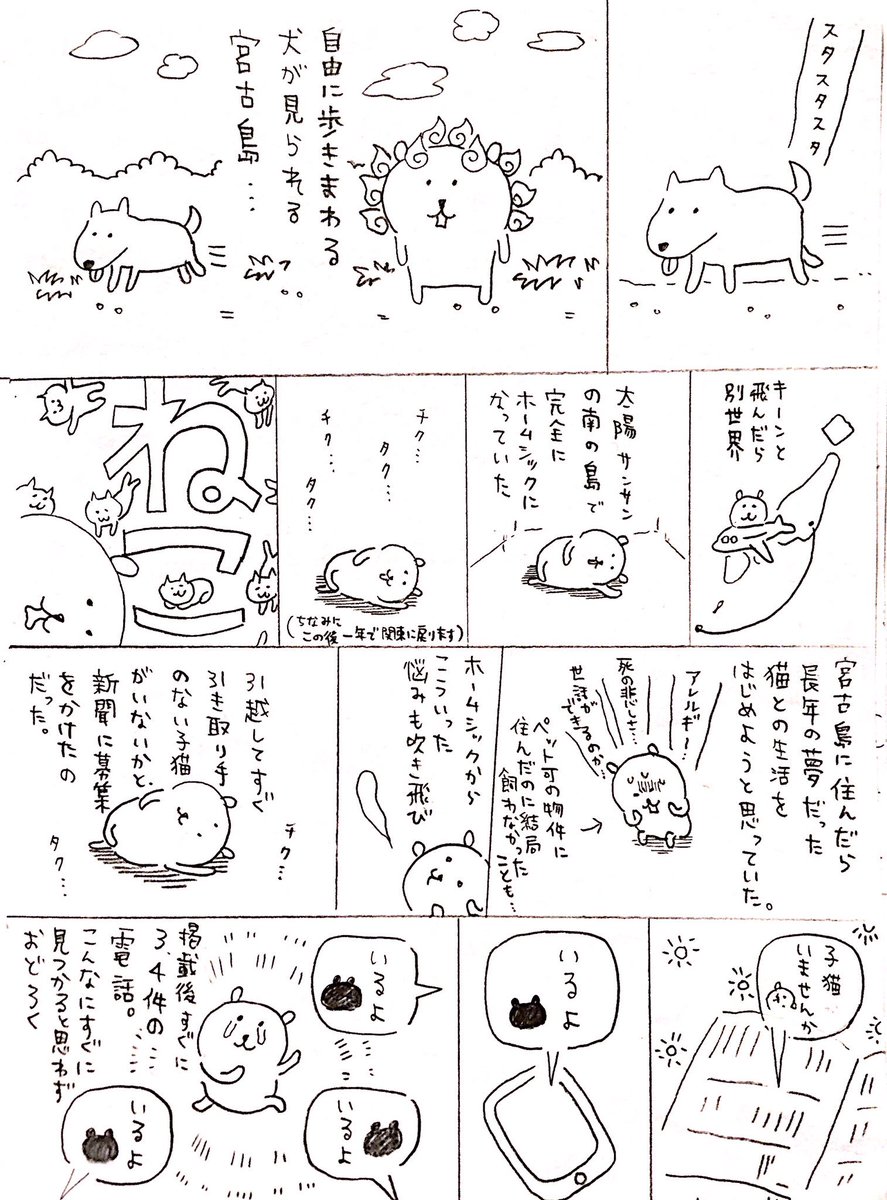 スタスタスタ
自由に歩きまわる
犬が見られる
宮古島…
キーンと
飛んだら
別世界
太陽 サンサン
の南の島で
完全に
ホームシックに
なっていた
チク…
タク…
チク…
タク…
(ちなみに
この後一年で関東に戻ります)
ねこ
宮古島に住んだら
長年の夢だった
猫との生活を
はじめようと思っていた。
アレルギー…
死の悲しさ…
世話が
できるのか…
ペット可の物件に
住んだのに結局
飼わなかった
ことも…
ホームシックから
こういった
悩みも吹き飛び
引越してすぐ
引き取り手
のない子猫
がいないかと、
新聞に募集
をかけたの
だった。
チク…
タク…
子猫
いませんか
いるよ
いるよ
掲載後すぐに
3、4件の
電話。
こんなにすぐに
見つかると思わず
おどろく
いるよ
いるよ